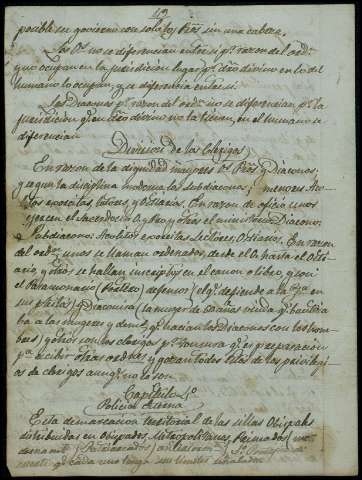 43
posible se goviesen con solo los Pros sin una cabeza.
Los Os no se diferencian entre si pr razon del ordn
que ocupan en la jurisdicion lugar pr dro divino en lo del
humano lo ocupan, y se diferencia entre si
Los Diaconos pr razon del ordn no se diferencian pr la
jurisdicion qe en dro divino no la tienen, en el humano se
diferencian
Division de los Clerigos
En razon de la dignidad mayores Os Pros y Diaconos,
y segun la disciplina moderna los Subdiaconos; menores Aco
litos exorcistas, lectores, y Ostiarios. En razon de oficio unos
ejercen el Sacerdocio y otros el ministerio Diaconos
Subdiaconos Acolitos exorcistas Lectores, Ostiarios. En razon
del ordn unos se llaman ordenados, desde el O hasta el Osti
ario, y otros se hallan inscriptos en el canon o libro, y son
el Paramonario (Portero) defensor (el qe defiende a la Yga en
sus pleitos) y Diaconisa (la muger de 60 años viuda qe bautiza
ba a las mugeres y demas qe hacian los Diaconos con los hom
bres) y otros son los clerigos pr tonsura qe es preparacion
pa recibir otras ordenes, y gozan todos estos de los privilegi
os de clerigos aunqe no lo son.
Capitulo 5º
Policia externa
Esta demarcacion territorial de las sillas Obispales
distribuidas en Obispados, Metropolitanos, Primados (mo